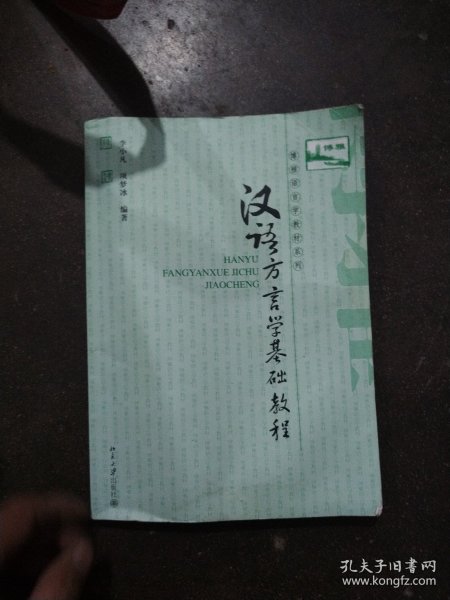 博雅
博雅语言学教材系列
汉语方言学基础教程
HANYU
FANGYANXUE JICHU
JIAOCHENG
李小凡 项梦冰 编著
北京大学出版社
孔夫子旧书网
www.kongfz.com